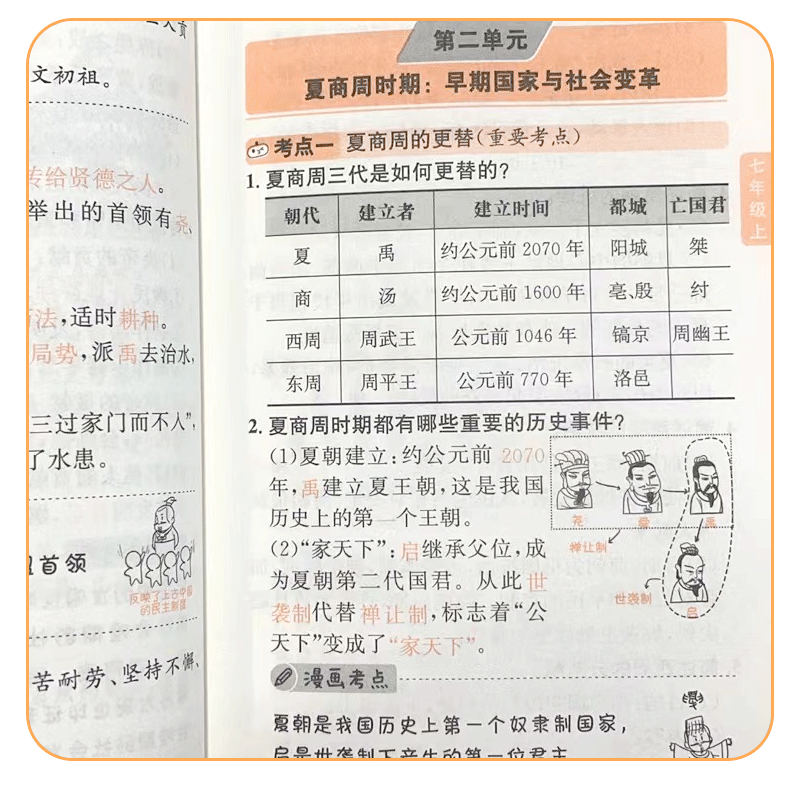 文初祖。
传给贤德之人。
举出的首领有尧,
法,适时耕种。
局势,派禹去治水,
三过家门而不入”,
了水患。
首领
反映了上古中国
的民主制度
苦耐劳、坚持不懈、
第二单元
夏商周时期:早期国家与社会变革
考点一 夏商周的更替(重要考点)
七年级上
1.夏商周三代是如何更替的?
朝代 建立者 建立时间 都城 亡国君
夏 禹 约公元前 2070 年 阳城 桀
商 汤 约公元前 1600 年 亳、殷 纣
西周 周武王 公元前 1046 年 镐京 周幽王
东周 周平王 公元前 770 年 洛邑
2.夏商周时期都有哪些重要的历史事件?
(1)夏朝建立:约公元前 2070
年,禹建立夏王朝,这是我国
历史上的第一个王朝。
(2)“家天下”:启继承父位,成
为夏朝第二代国君。从此世
袭制代替禅让制,标志着“公
天下”变成了“家天下”。
尧 舜 禹
禅让制
世袭制
启
漫画考点
夏朝是我国历史上第一个奴隶制国家,
启是世袭制下产生的第一位君主